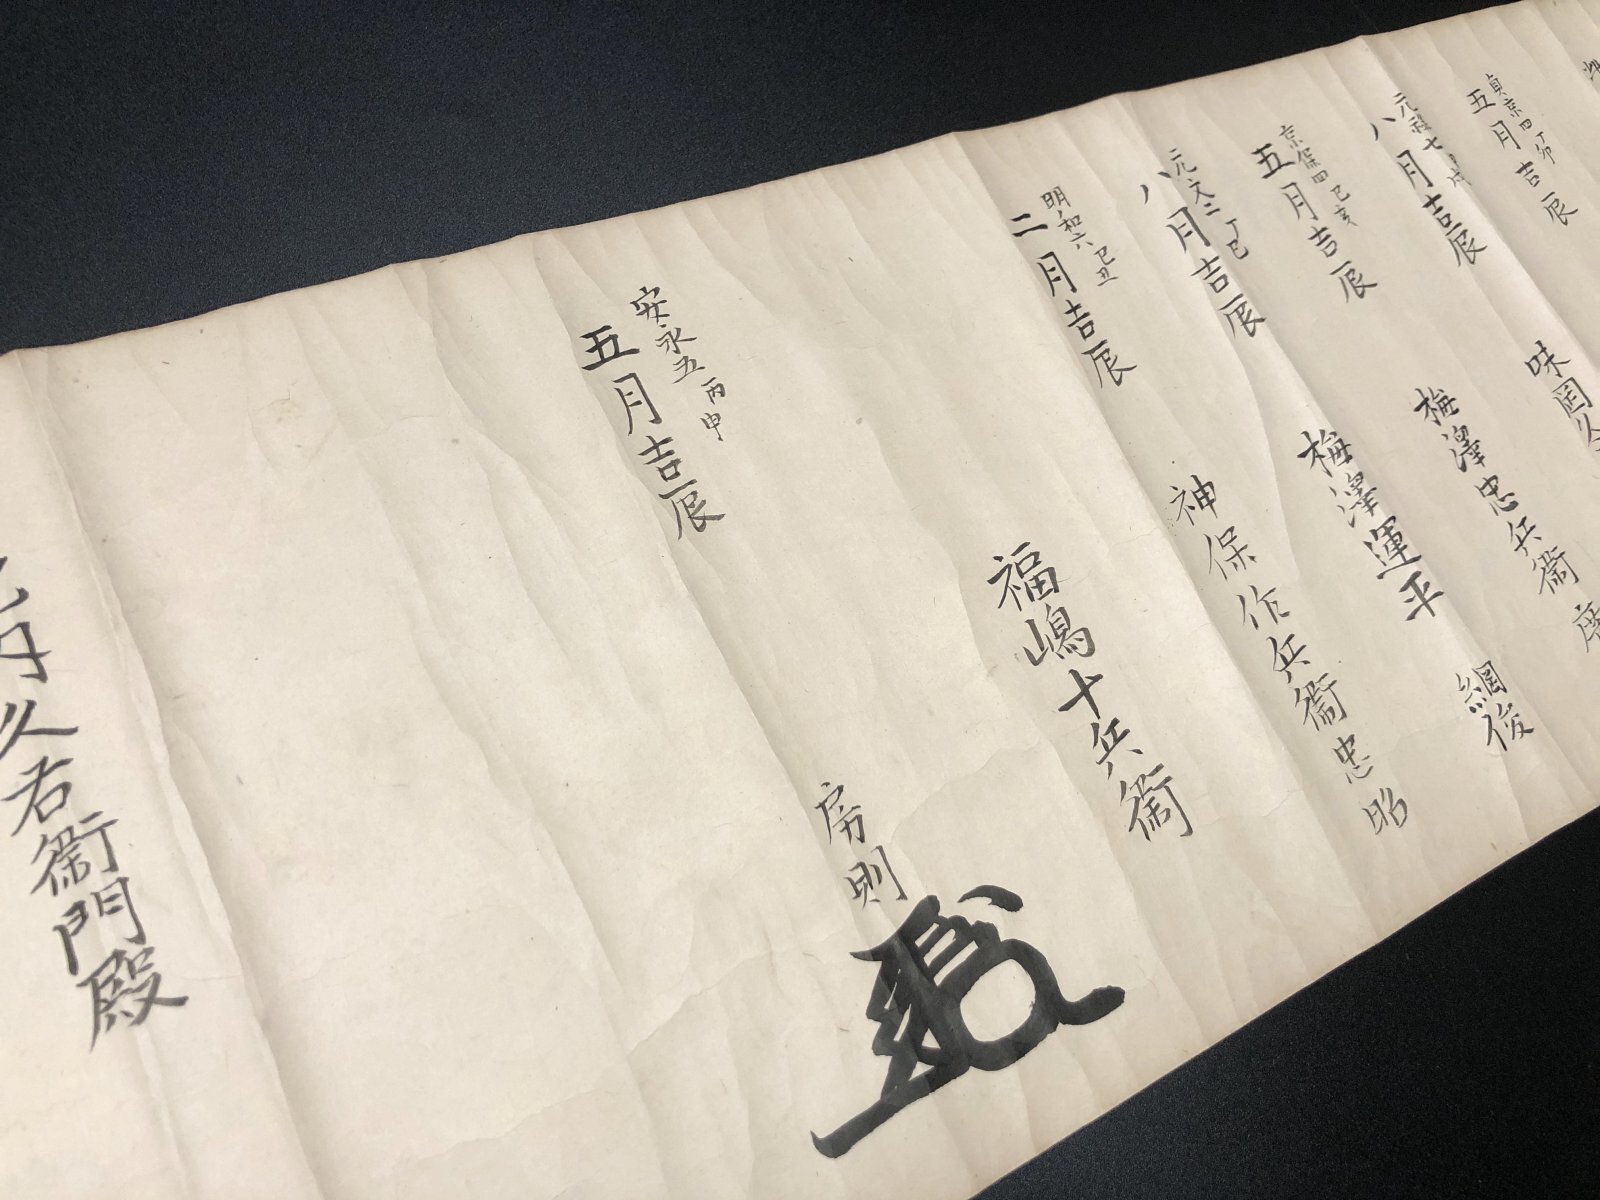 貞京四丁卯
五月吉辰
味岡久
元祿七甲戌
八月吉辰
梅澤忠兵衛
京保四己亥
五月吉辰
梅澤運平
綱俊
元文二丁巳
八月吉辰
神保作兵衛忠昭
明和六己丑
二月吉辰
福嶋十兵衛
房則
安永五丙申
五月吉辰
久右衛門殿